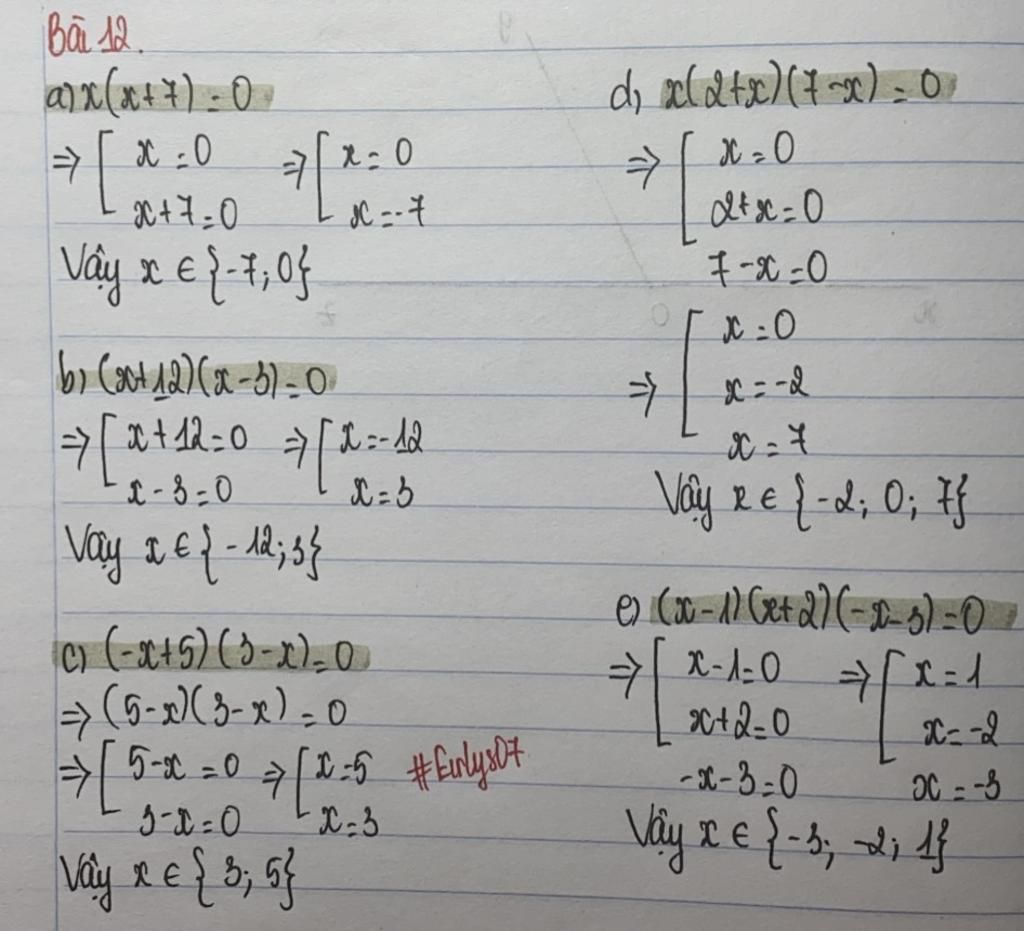 Bài 12.
a) x(x+7) = 0
⇒ [ x = 0 ⇒ [ x = 0
x+7 = 0 x = -7
Vậy x ∈ {-7; 0}
b) (x+12)(x-3) = 0
⇒ [ x+12 = 0 ⇒ [ x = -12
x-3 = 0 x = 3
Vậy x ∈ {-12; 3}
c) (-x+5)(3-x) = 0
⇒ (5-x)(3-x) = 0
⇒ [ 5-x = 0 ⇒ [ x = 5
3-x = 0 x = 3
#Eirlys07
Vậy x ∈ {3; 5}
d) x(2+x)(7-x) = 0
⇒ [ x = 0
2+x = 0
7-x = 0
⇒ [ x = 0
x = -2
x = 7
Vậy x ∈ {-2; 0; 7}
e) (x-1)(x+2)(-x-3) = 0
⇒ [ x-1 = 0 ⇒ [ x = 1
x+2 = 0 x = -2
-x-3 = 0 x = -3
Vậy x ∈ {-3; -2; 1}